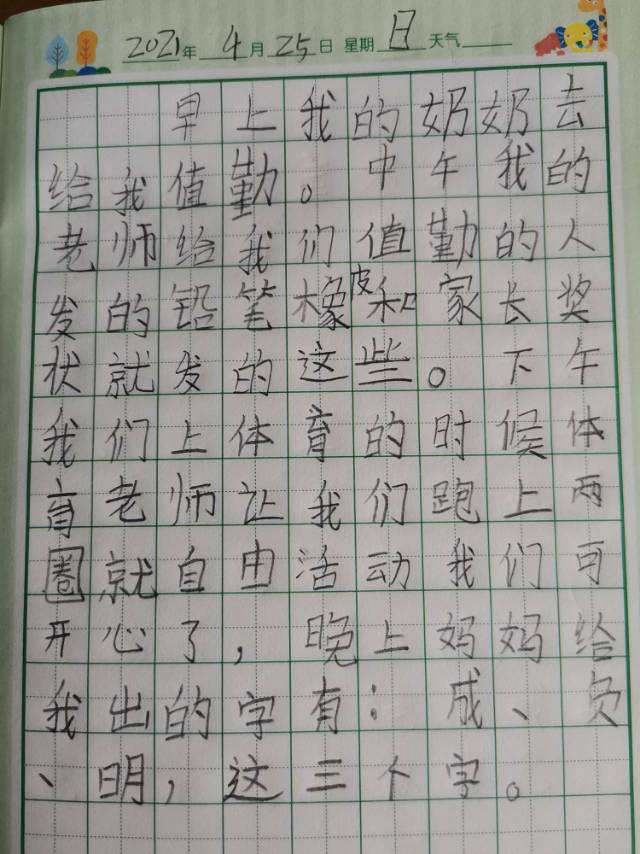 2021年 4月 25日 星期 日 天气
早上我的奶奶去
给我值勤。中午我的
老师给我们值勤的人
发的铅笔橡皮和家长奖
状就发的这些。下午
我们上体育的时候体
育老师让我们跑上两
圈就自由活动我们可
开心了，晚上妈妈给
我出的字有：成、负
、明，这三个字。